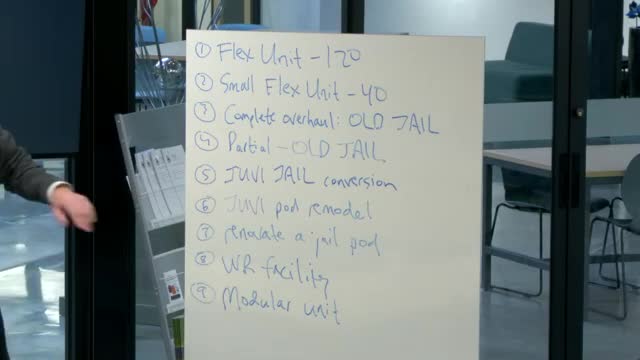 ① Flex Unit - 120
② Small Flex Unit - 40
③ Complete overhaul: OLD JAIL
④ Partial - OLD JAIL
⑤ JUVI JAIL conversion
⑥ JUVI pod remodel
⑦ renovate a jail pod
⑧ WR facility
⑨ Modular unit